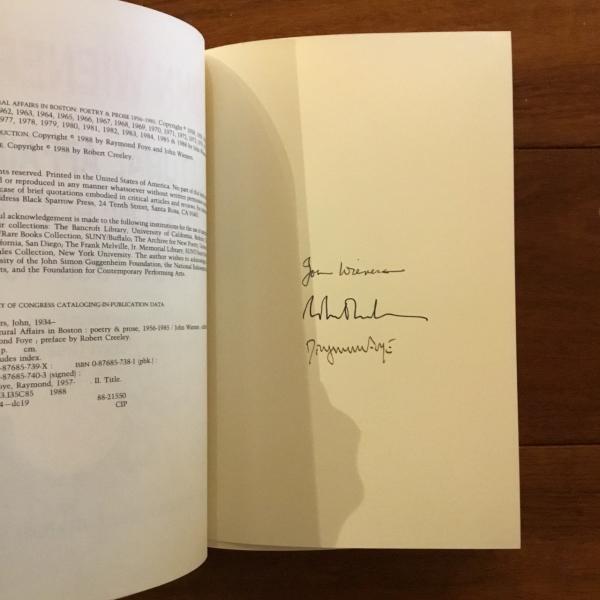 RAL AFFAIRS IN BOSTON: POETRY & PROSE 1956-1985. Copyright © 1958, 1959,
962, 1963, 1964, 1965, 1966, 1967, 1968, 1969, 1970, 1971, 1972,
977, 1978, 1979, 1980, 1981, 1982, 1983, 1984, 1985 & 1988 by John
DUCTION. Copyright © 1988 by Raymond Foye and John Wieners.
E. Copyright © 1988 by Robert Creeley.
hts reserved. Printed in the United States of America. No part of this
d or reproduced in any manner whatsoever without written permission
case of brief quotations embodied in critical articles and reviews. For
ddress Black Sparrow Press, 24 Tenth Street, Santa Rosa, CA 95401.
ul acknowledgement is made to the following institutions for the use of
eir collections: The Bancroft Library, University of California,
/Rare Books Collection, SUNY/Buffalo, The Archive for New Poetry,
ifornia, San Diego, The Frank Melville, Jr. Memorial Library, SUNY/
ales Collection, New York University. The author wishes to acknowledge
rosity of the John Simon Guggenheim Foundation, the National
ts, and the Foundation for Contemporary Performing Arts.
Y OF CONGRESS CATALOGING-IN-PUBLICATION DATA
rs, John, 1934-
tural Affairs in Boston : poetry & prose, 1956-1985 / John Wieners
ond Foye ; preface by Robert Creeley.
p. cm.
udes index.
-87685-739-X : ISBN 0-87685-738-1 (pbk.) :
-87685-740-3 (signed) :
oye, Raymond, 1957- II. Title.
3.I35C85 1988
4—dc19 88-21550
CIP
John Wieners
Raymond Foye